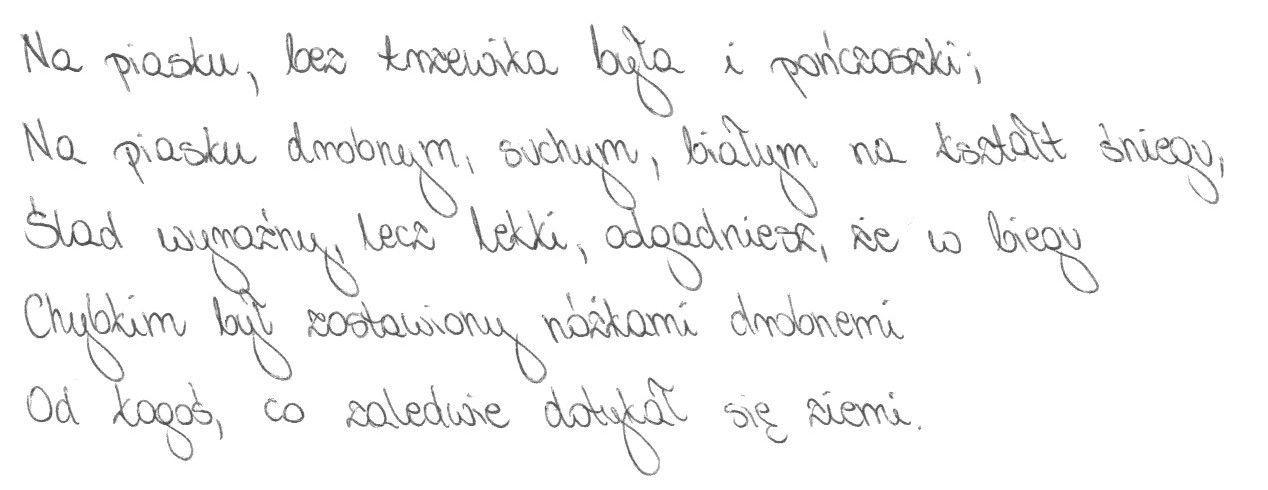 Na piasku, bez trzewika była i pończoszki;
Na piasku drobnym, suchym, białym na kształt śniegu,
Ślad wyraźny, lecz lekki, odgadniesz, że w biegu
Chybkim był zostawiony nóżkami drobnemi
Od kogoś, co zaledwie dotykał się ziemi.